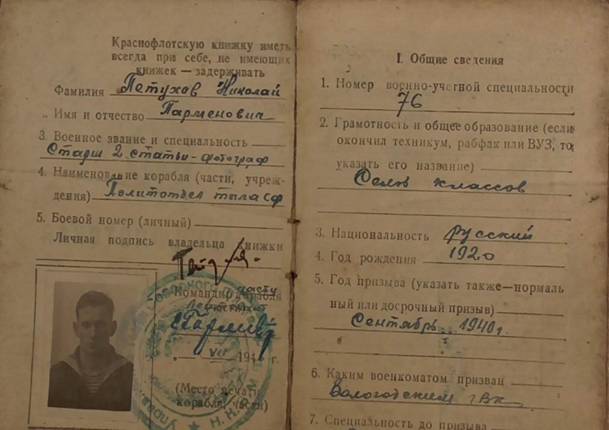 Краснофлотскую книжку иметь
всегда при себе, не имеющих
книжек — задерживать
Фамилия Петухов Николай
„ Имя и отчество Парменович
3. Военное звание и специальность
Старш 2 статьи-фотограф
4. Наименование корабля (части, учреж-
дения) Политотдел тыла СФ
5. Боевой номер (личный)
Личная подпись владельца книжки
Командир корабля
VII 194
(Место печати
корабля, части)
I. Общие сведения
1. Номер военно-учетной специальности
76
2. Грамотность и общее образование (если
окончил техникум, рабфак или ВУЗ, то
указать его название)
Семь классов
3. Национальность русский
4. Год рождения 1920
5. Год призыва (указать также—нормаль
ный или досрочный призыв)
Сентябрь 1940г.
6. Каким военкоматом призван
Вологодским ГВК
7. Специальность до призыва